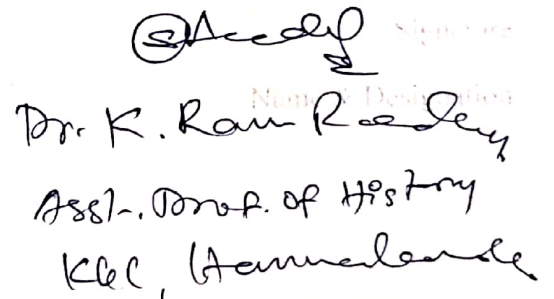 Signature
Name & Designation
Dr. K. Ram Reddy
Asst. Prof. of History
KGC, Hanmakonda